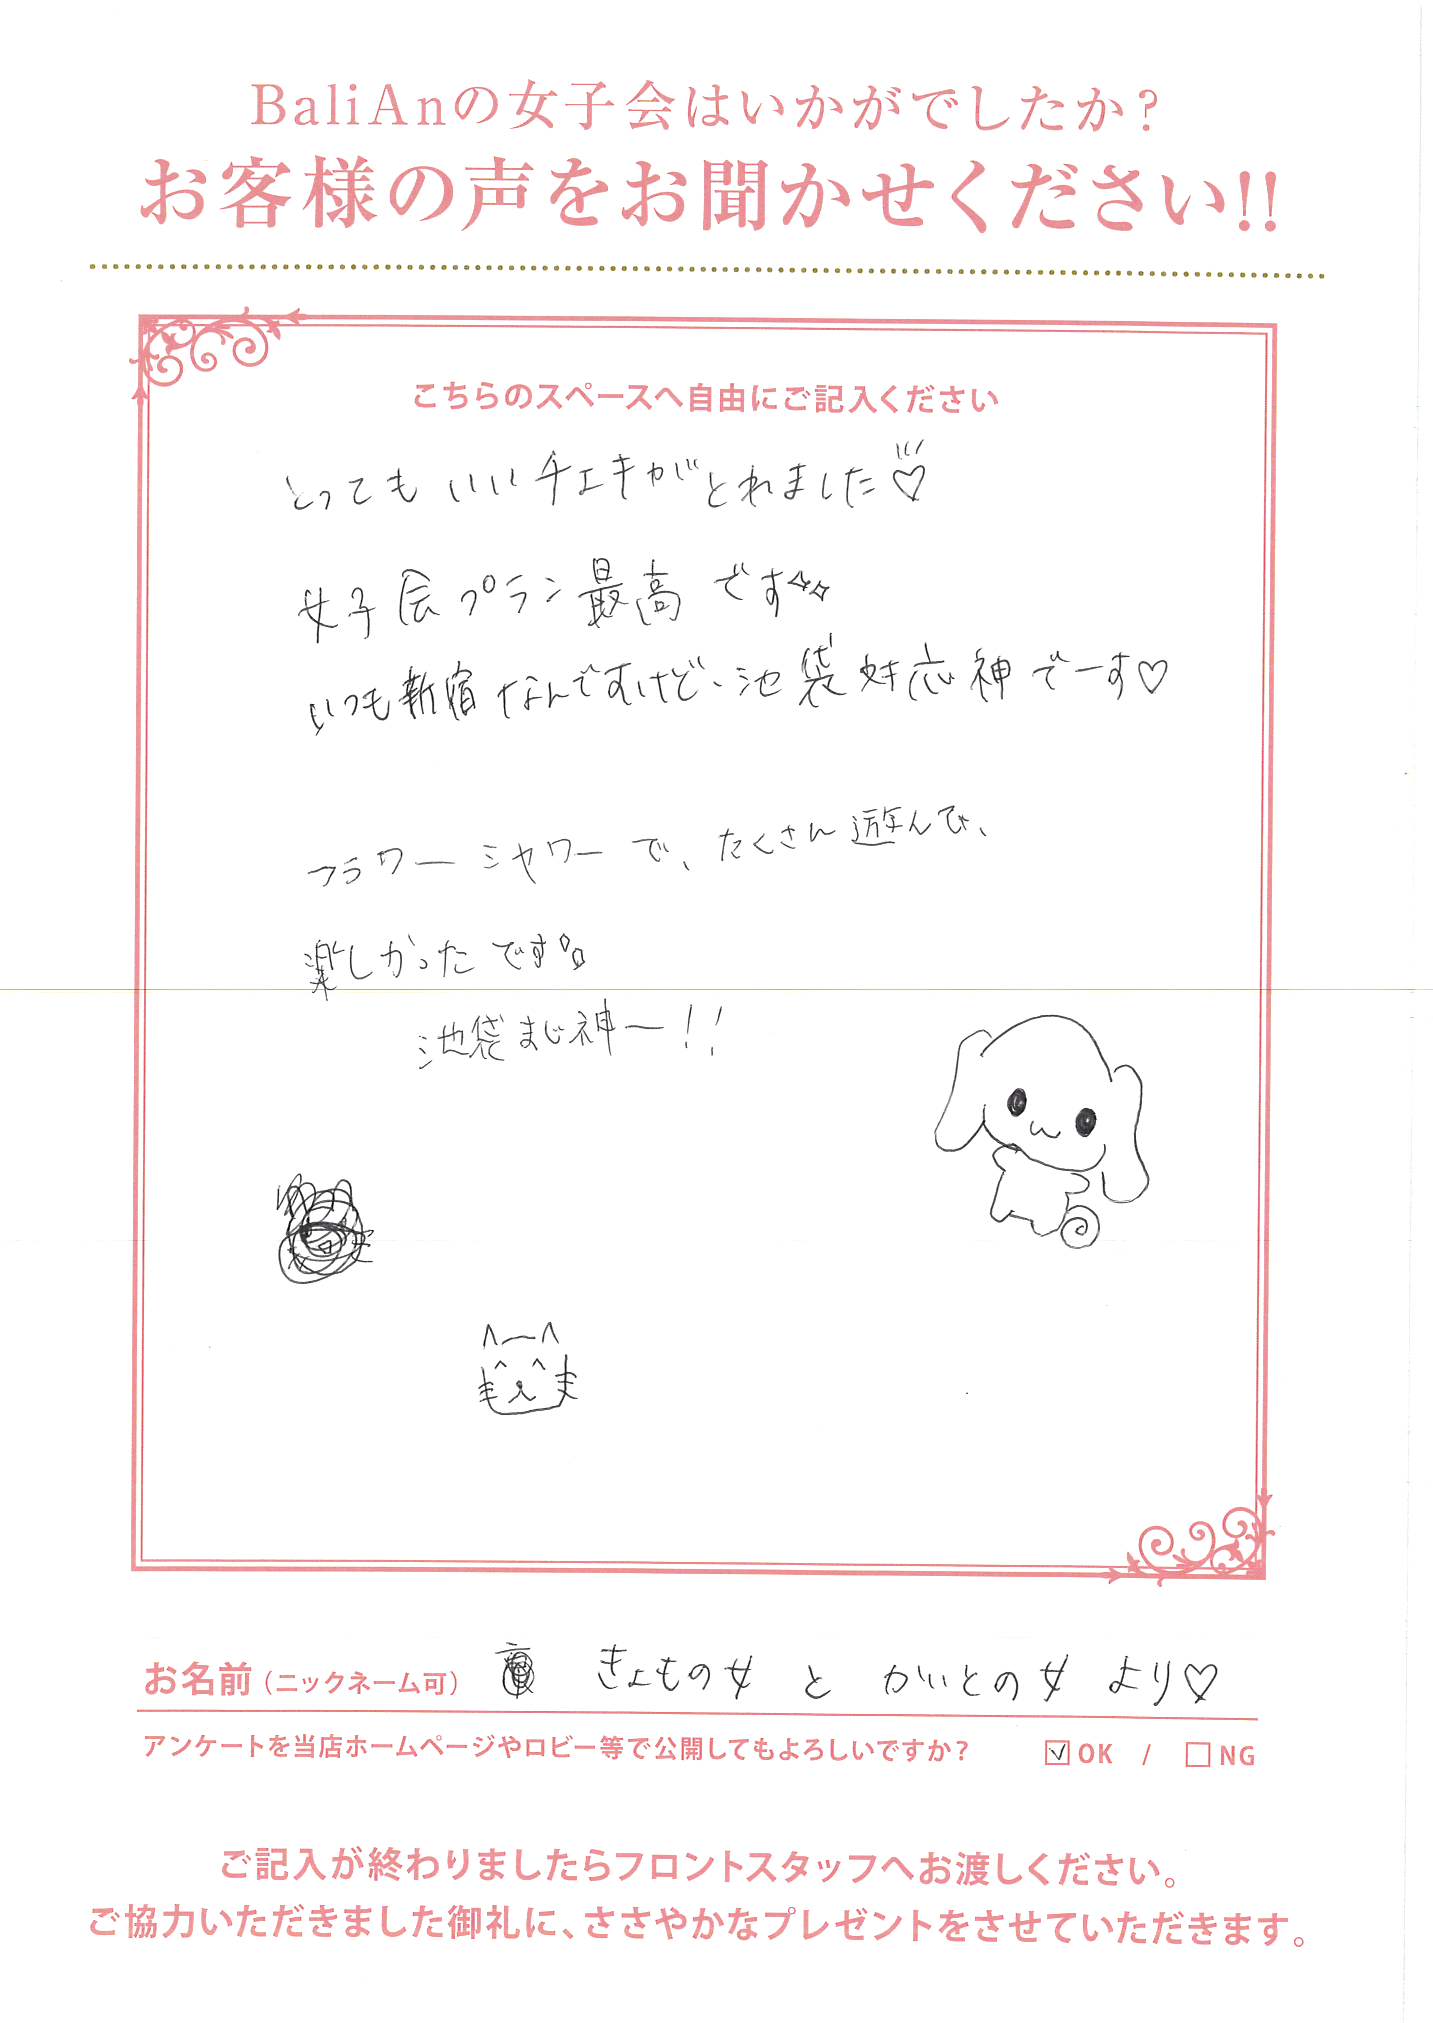 BaliAnの女子会はいかがでしたか?
お客様の声をお聞かせください!!
こちらのスペースへ自由にご記入ください
とってもいいチェキがとれました♡
女子会プラン最高です
いつも新宿なんですけど、池袋対応神でーす♡
フラワーシャワーで、たくさん遊んで、
楽しかったです
池袋まじ神ー!!
お名前(ニックネーム可) きょもの女 と かいとの女 より♡
アンケートを当店ホームページやロビー等で公開してもよろしいですか? ☑OK / □NG
ご記入が終わりましたらフロントスタッフへお渡しください。
ご協力いただきました御礼に、ささやかなプレゼントをさせていただきます。